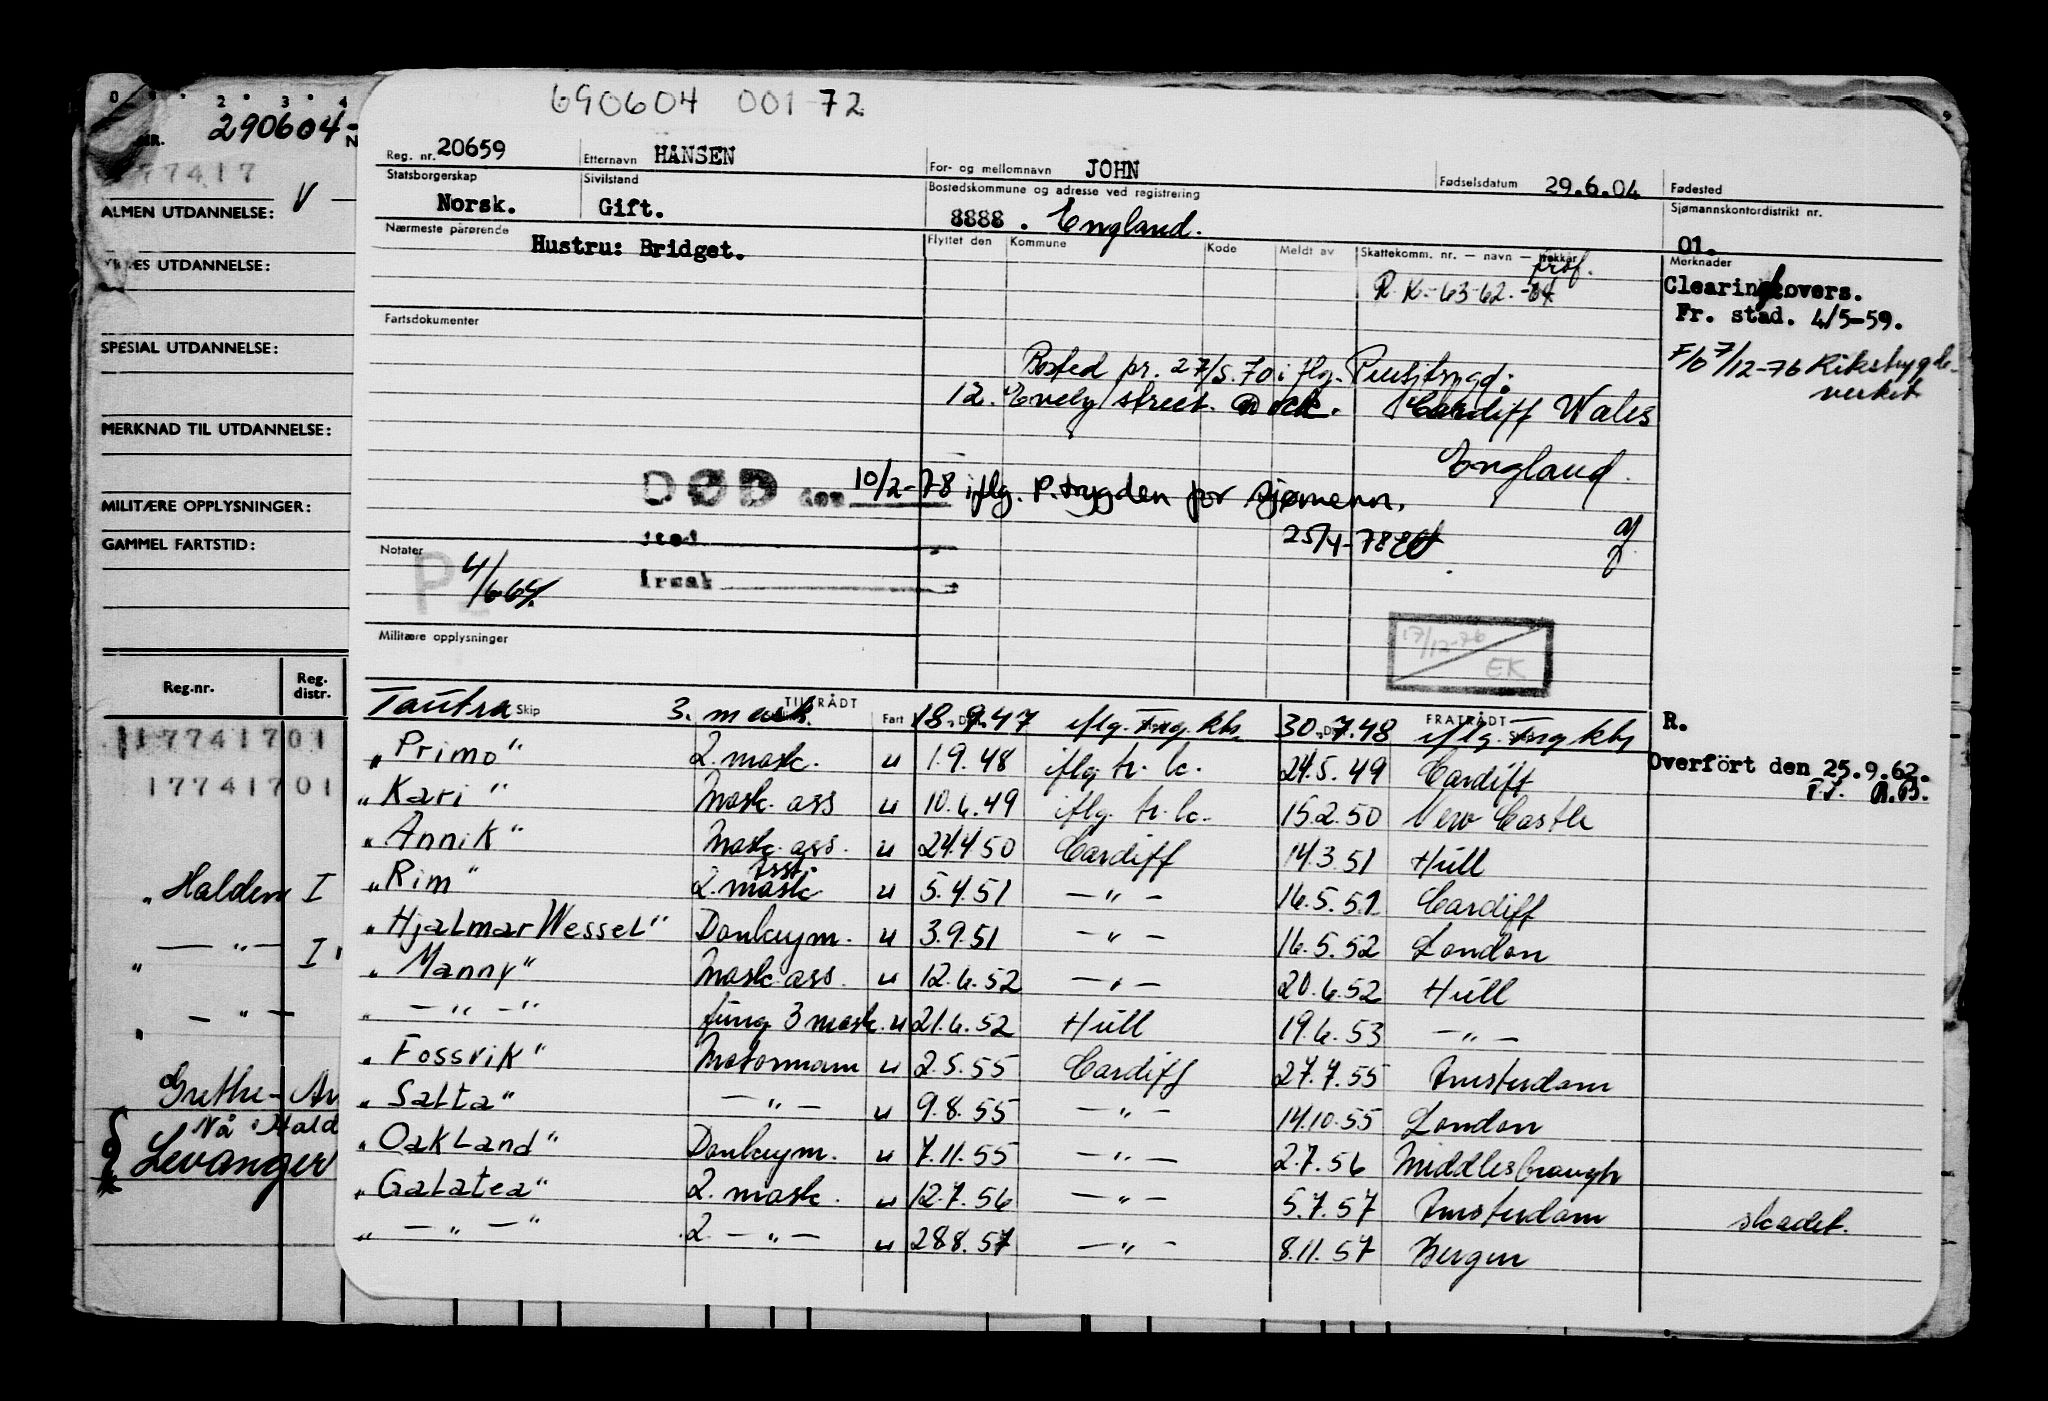 690604 001 72
290604-
77417
V
ALMEN UTDANNELSE:
UTDANNELSE:
SPESIAL UTDANNELSE:
MERKNAD TIL UTDANNELSE:
MILITÆRE OPPLYSNINGER:
GAMMEL FARTSTID:
Reg.nr. Reg. distr.
17741701
17741701
„ Halden I
„ — " — I
„ — " —
Grethe- An
Nå Hald
Levanger
Reg. nr. 20659 Etternavn HANSEN For- og mellomnavn JOHN Fødselsdatum 29.6.04 Fødested
Statsborgerskap Norsk. Sivilstand Gift. Bostedskommune og adresse ved registrering 8888 . England. Sjømannskontordistrikt nr. 01.
Nærmeste pårørende Hustru: Bridget. Flyttet den Kommune Kode Meldt av Skattekomm. nr. — navn — trekkår Merknader
prof.
R.K.-63-62.-64.
Clearingovers.
Fr. stad. 4/5-59.
F/o 7/12-76 Rikstrygde-
verket
Fartsdokumenter
Bosted pr. 27/5.70 iflg. Pensjtrygd:
12. Evely street. Cardiff Wales
England.
DØD den 10/2-78 iflg. P.trygden for sjømenn.
sted 25/4-78
Notater P 4/6-64. årsak
17/12-76 EK
Militære opplysninger
Skip TILTRÅDT Fart FRATRÅDT R.
Tautra 3. mask. 18.9.47 iflg. Trygkbs 30.7.48 iflg. Trygkbs
„Primo" 2. mask. u 1.9.48 iflg. tr. k. 24.5.49 Cardiff
Overfört den 25.9.62.
„Kari" Mask. ass u 10.6.49 iflg. tr. k. 15.2.50 New Castle
„Annik" Mask. ass. u 24.4.50 Cardiff 14.3.51 Hull
„Rim" 2. mask asst. u 5.4.51 — " — 16.5.51 Cardiff
„Hjalmar Wessel" Donkeym. u 3.9.51 — " — 16.5.52 London
„Manny" Mask. ass. u 12.6.52 — " — 20.6.52 Hull
„ — " — " fung 3 mask. u 21.6.52 Hull 19.6.53 — " —
„Fossvik" Motormann u 2.5.55 Cardiff 27.7.55 Amsterdam
„Salta" — " — u 9.8.55 — " — 14.10.55 London
„Oakland" Donkeym. u 7.11.55 — " — 2.7.56 Middlesbrough
„Galatea" 2. mask. u 12.7.56 — " — 5.7.57 Amsterdam skadet.
„ — " — " 2. — " — u 28.8.57 — " — 8.11.57 Bergen